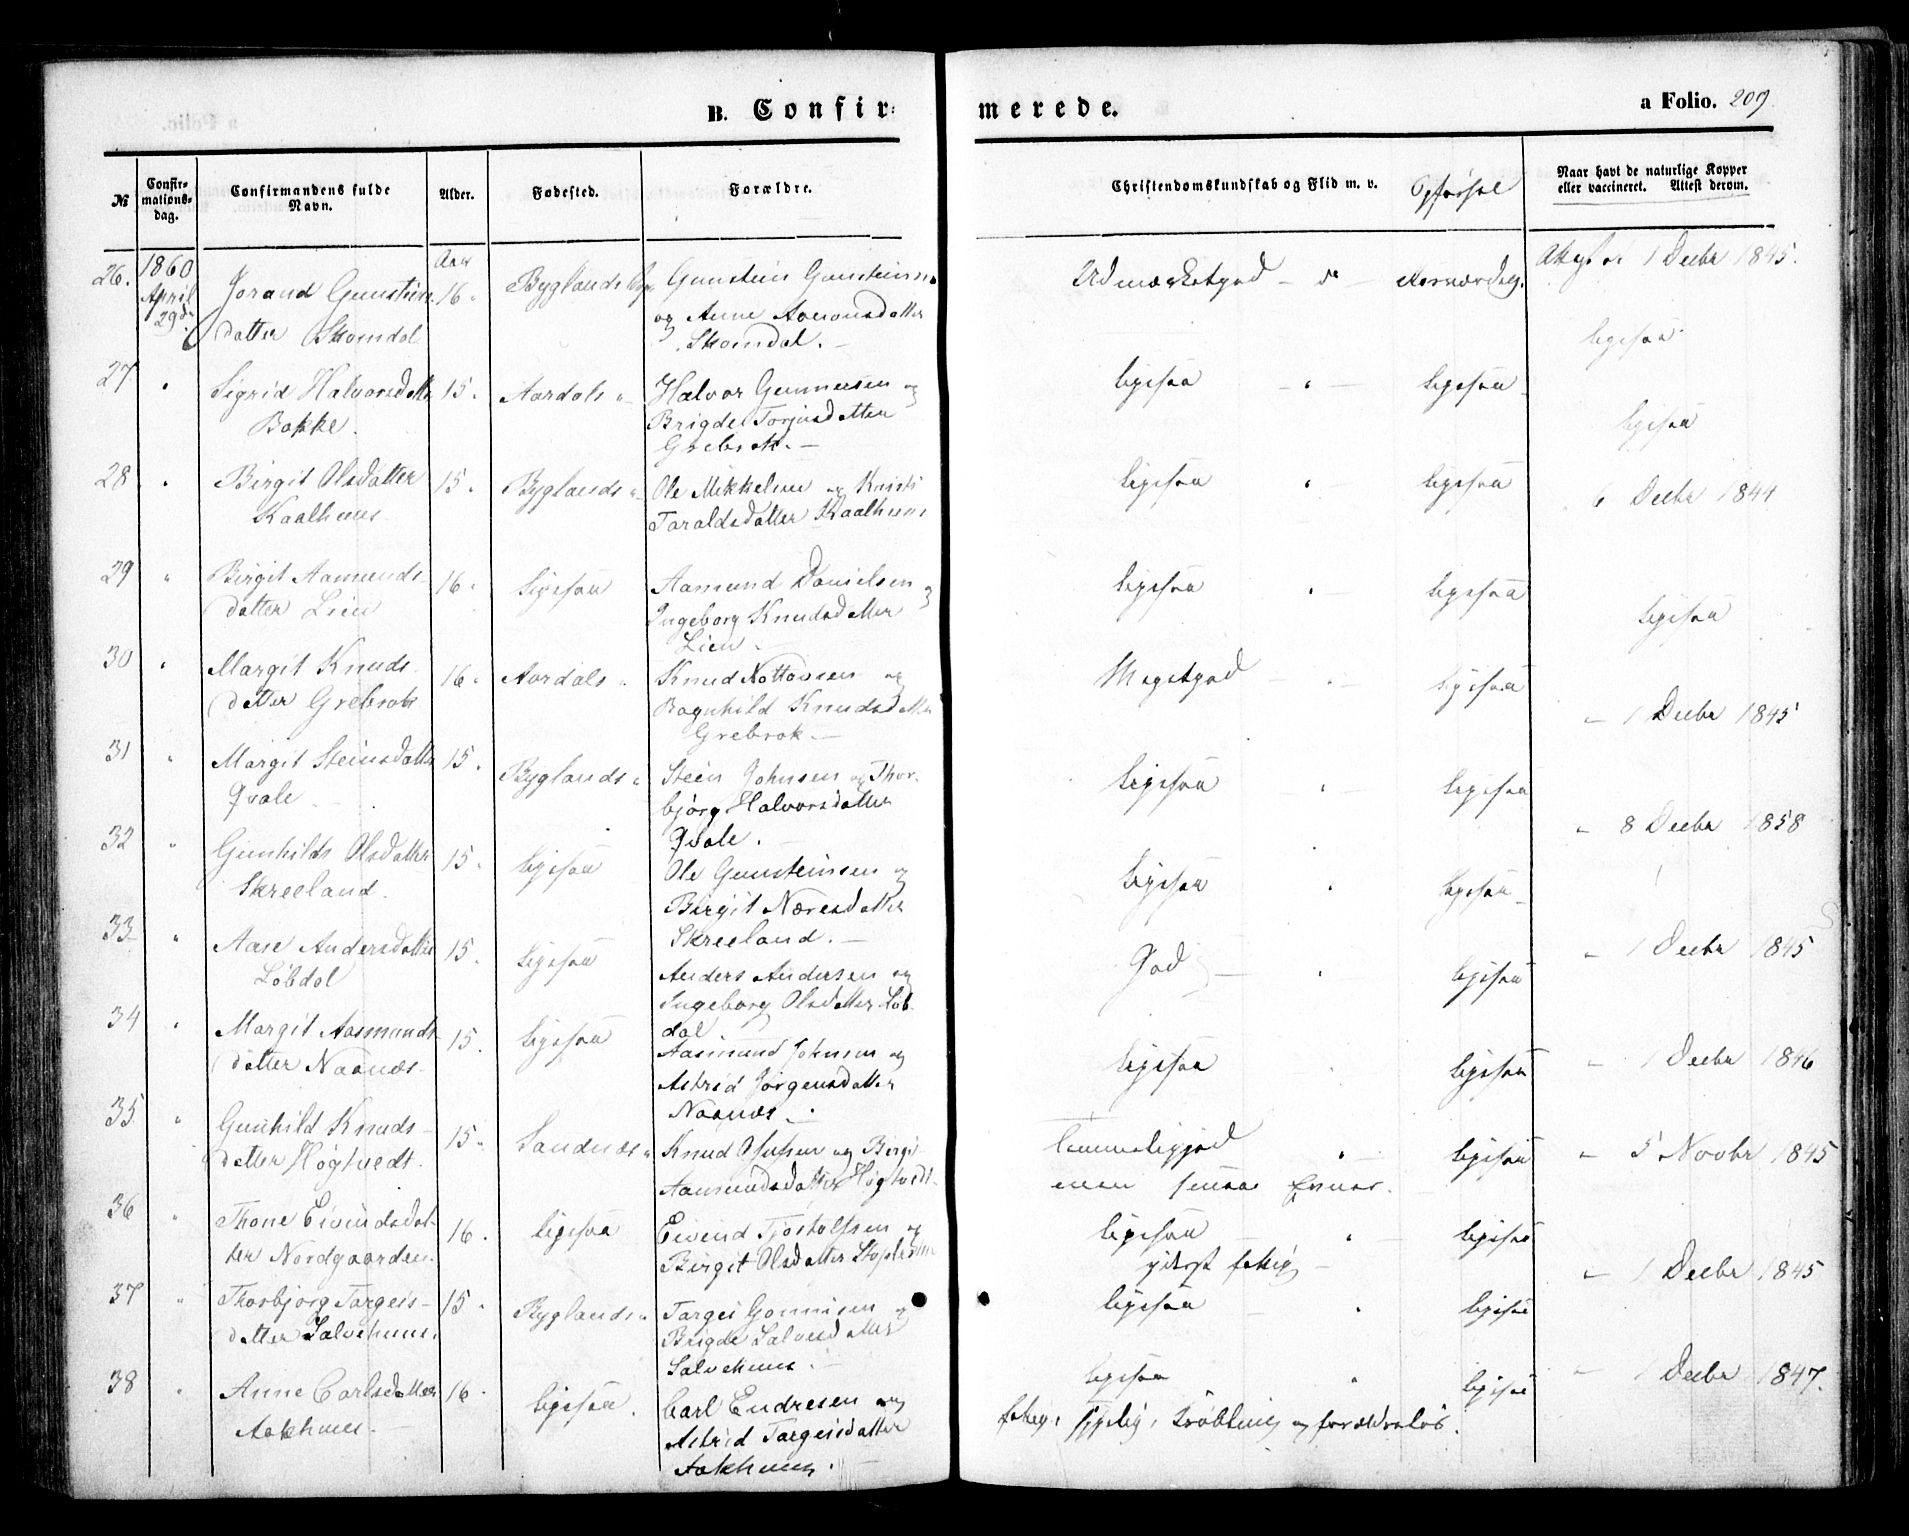 B. Confir-
merede.
a Folio. 209.
№
Confir-
mations-
dag.
Confirmandens fulde
Navn.
Alder.
Fødested.
Forældre.
Christendomskundskab og Flid m. v.
Opførsel
Naar havt de naturlige Kopper
eller vaccineret. Attest derom.
26. 1860 April 29de
Jorand Gunsteins
datter Skomdal
Aar 16
Byglands
Gunstein Gunsteinsen
og Anne Aanonsdatter
Skomdal.
Udmærketgod
1 Decbr 1845.
27 " Sigrid Halvorsdatter
Bakke.
15 Aardals "
Halvor Gunnersen og
Brigdet Torjusdatter
Grebrok.
ligesaa " ligesaa
ligesaa
28 " Birgit Olsdatter
Kaalhuus
15 Byglands "
Ole Mikkelsen og Kristi
Taraldsdatter Kaalhuus
ligesaa " ligesaa
ligesaa
29 " Birgit Aamunds-
datter Lien
16 ligesaa
Aamund Danielsen og
Ingeborg Knudsdatter
Lien.
ligesaa " ligesaa
Decbr 1844
30 " Margit Knuds-
datter Grebrok
16 Aardals "
Knud Nottovsen og
Ragnhild Knudsdatter
Grebrok.
Megetgod " ligesaa
ligesaa
31 " Margit Steinsdatter
Qvale
15 Byglands "
Stein Johnsen og Thor-
bjørg Halvorsdatter
Qvale.
ligesaa " ligesaa
" 1 Decbr 1845
32 " Gunhild Olsdatter
Skreeland.
15 ligesaa
Ole Gunsteinsen og
Birgit Næresdatter
Skreeland.
ligesaa " ligesaa
" 8 Decbr 1858
33 " Aase Andersdatter
Løbdal
15 ligesaa
Anders Andersen og
Ingeborg Olsdatter Løb-
dal.
God " ligesaa
" 1 Decbr 1845
34 " Margit Aasmunds-
datter Naanæs
15 ligesaa
Aasmund Johnsen og
Astrid Jørgensdatter
Naanæs.
ligesaa " ligesaa
" 1 Decbr 1846
35 " Gunhild Knuds-
datter Høgtvedt.
15 Sandnæs "
Knud Olufsen og Birgit
Aamundsdatter Høgtvedt
Temmeliggod " ligesaa
men
" 5 Novbr 1845
36 " Thone Eivindsdat-
ter Nordgaarden.
16 ligesaa
Eivind Tjostolfsen og
Birgit Olsdatter
ligesaa " ligesaa
yderst fattig
" 1 Decbr 1845
37 " Thorbjørg Targeis-
datter Salvehuus.
15 Byglands "
Targei Gonnisen og
Brigde Salvesdatter
Salvehuus.
ligesaa " ligesaa
38 " Anne Carlsdatter
Aakhuus.
16 ligesaa.
Carl Endresen og
Astrid Targeisdatter
Aakhuus.
ligesaa " ligesaa
og forældreløs.
" 1 Decbr 1847.